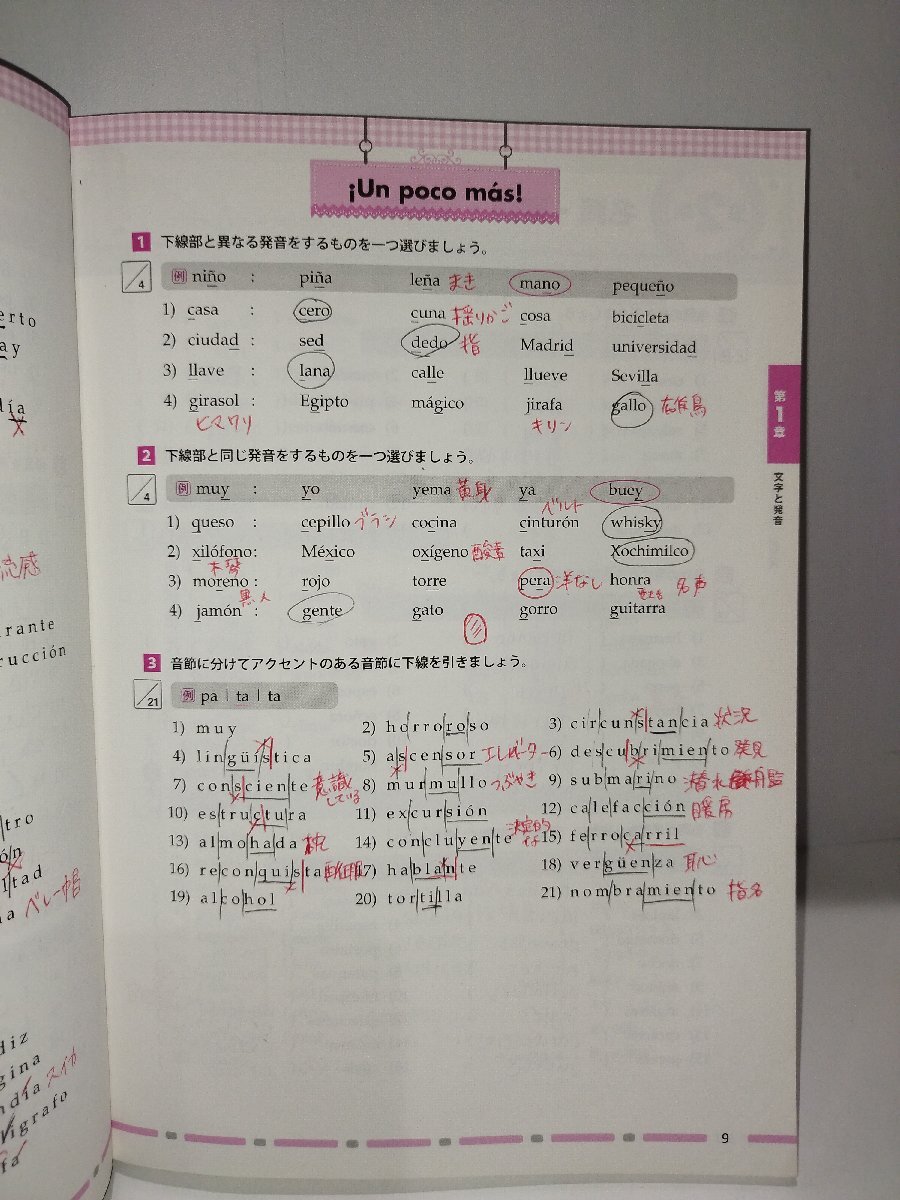 ¡Un poco más!
1 下線部と異なる発音をするものを一つ選びましょう。
/4
例 niño : piña leña まき mano pequeño
1) casa : cero cuna 揺りかご cosa bicicleta
2) ciudad : sed dedo 指 Madrid universidad
3) llave : lana calle llueve Sevilla
4) girasol : Egipto mágico jirafa gallo 雄鳥
ヒマワリ キリン
2 下線部と同じ発音をするものを一つ選びましょう。
/4
例 muy : yo yema 黄身 ya buey
ベルト
1) queso : cepillo ブラシ cocina cinturón whisky
2) xilófono: México oxígeno 酸素 taxi Xochimilco
木琴
3) moreno : rojo torre pera 洋なし honra 名声
黒人
4) jamón : gente gato gorro guitarra
3 音節に分けてアクセントのある音節に下線を引きましょう。
/21
例 pa | ta | ta
1) muy 2) horroroso 3) circunstancia 状況
4) lingüística 5) ascensor エレベーター 6) descubrimiento 発見
7) consciente 意識している 8) murmullo つぶやき 9) submarino 潜水艦
10) estructura 11) excursión 12) calefacción 暖房
13) almohada 枕 14) concluyente 決定的な 15) ferrocarril
16) reconquista 17) hablante 18) vergüenza 恥
19) alcohol 20) tortilla 21) nombramiento 指名
第1章
文字と発音
9
erto
ay
día
流感
rante
rucción
tro
ón
ltad
a ベレー帽
diz
gina
ndía スイカ
vígrafo
fa